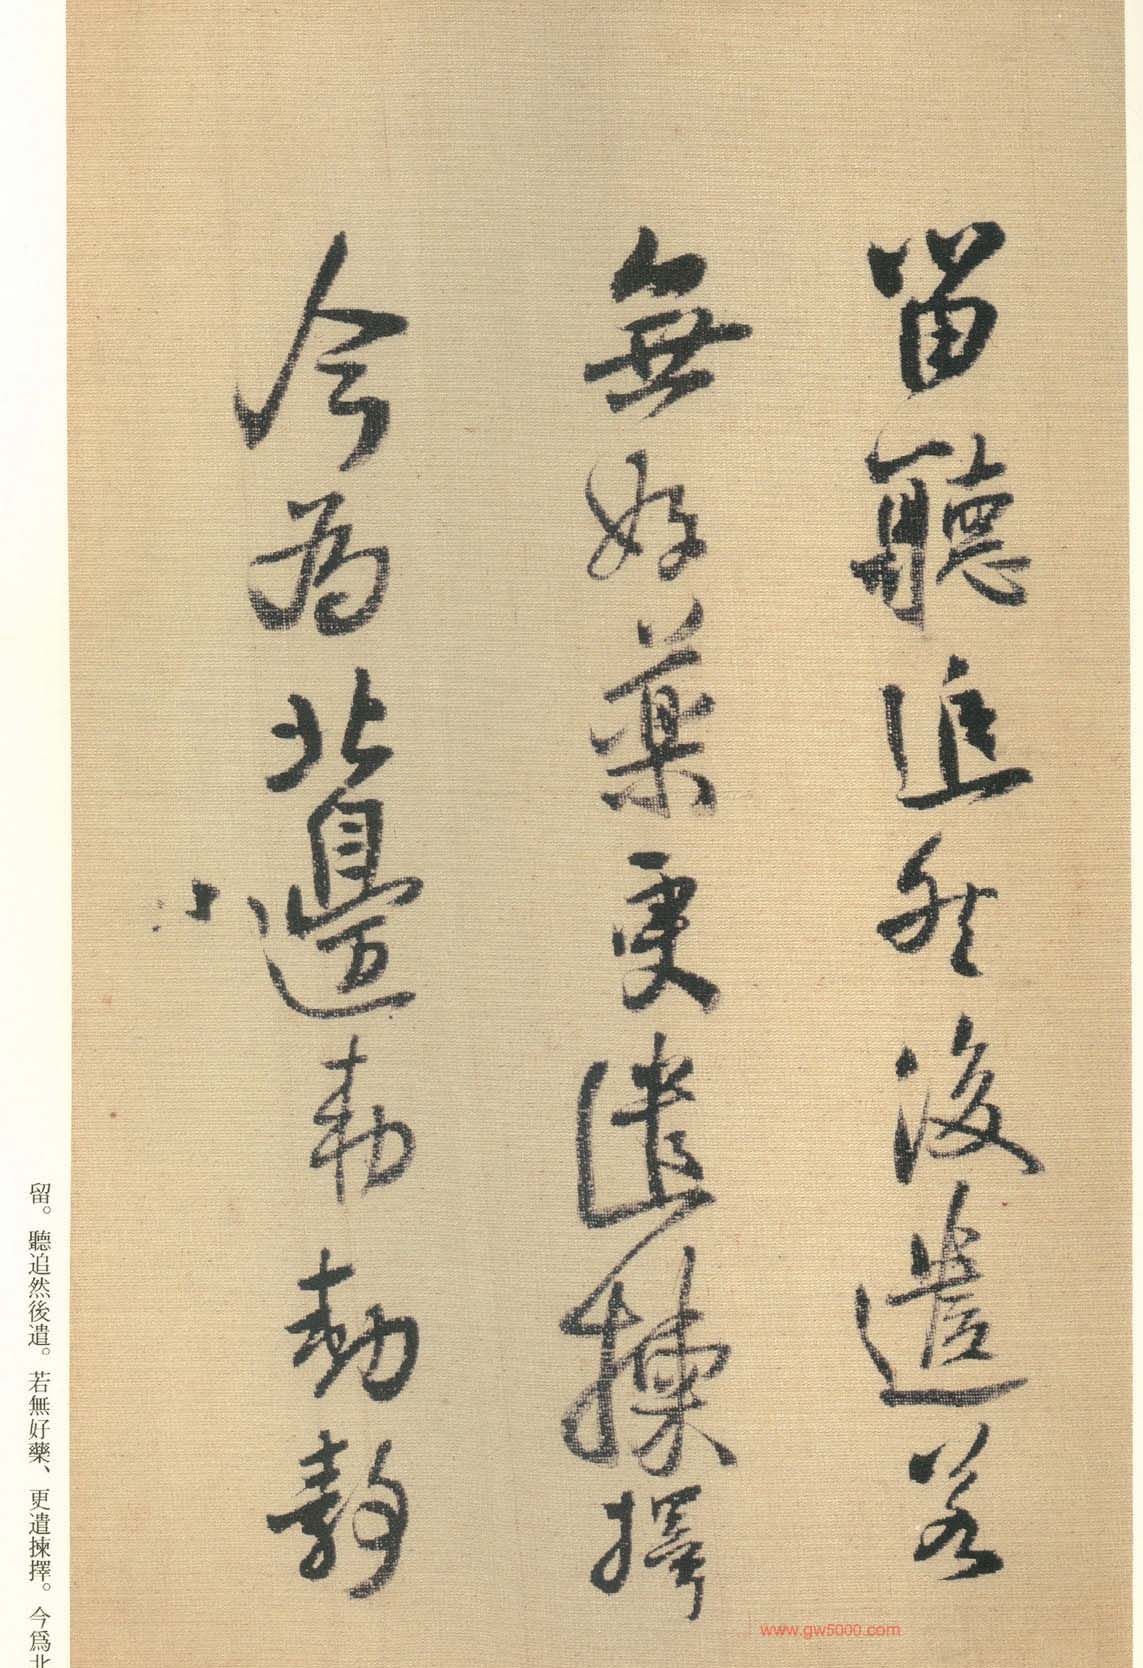 留聽追然後遣若
無好藥更遣揀擇
今為北邊動動静
留。聽追然後遣。若無好藥、更遣揀擇。今爲北
www.gw5000.com